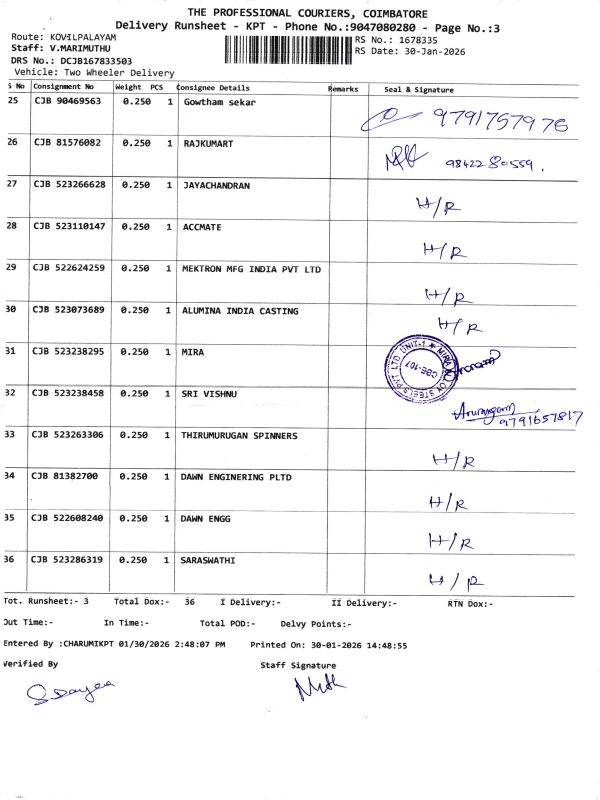 THE PROFESSIONAL COURIERS, COIMBATORE
Delivery Runsheet - KPT - Phone No.:9047080280 - Page No.:3
Route: KOVILPALAYAM RS No.: 1678335
Staff: V.MARIMUTHU RS Date: 30-Jan-2026
DRS No.: DCJB167833503
Vehicle: Two Wheeler Delivery
S No Consignment No Weight PCS Consignee Details Remarks Seal & Signature
25 CJB 90469563 0.250 1 Gowtham sekar 9791757976
26 CJB 81576082 0.250 1 RAJKUMART 9842280559.
27 CJB 523266628 0.250 1 JAYACHANDRAN H/R
28 CJB 523110147 0.250 1 ACCMATE H/R
29 CJB 522624259 0.250 1 MEKTRON MFG INDIA PVT LTD H/R
30 CJB 523073689 0.250 1 ALUMINA INDIA CASTING H/R
31 CJB 523238295 0.250 1 MIRA
STEELS PVT LTD UNIT-1 ★ MIRA
CBE-107
32 CJB 523238458 0.250 1 SRI VISHNU
9791657817
33 CJB 523263306 0.250 1 THIRUMURUGAN SPINNERS H/R
34 CJB 81382700 0.250 1 DAWN ENGINERING PLTD H/R
35 CJB 522608240 0.250 1 DAWN ENGG H/R
36 CJB 523286319 0.250 1 SARASWATHI H/R
Tot. Runsheet:- 3 Total Dox:- 36 I Delivery:- II Delivery:- RTN Dox:-
Out Time:- In Time:- Total POD:- Delvy Points:-
Entered By :CHARUMIKPT 01/30/2026 2:48:07 PM Printed On: 30-01-2026 14:48:55
Verified By Staff Signature